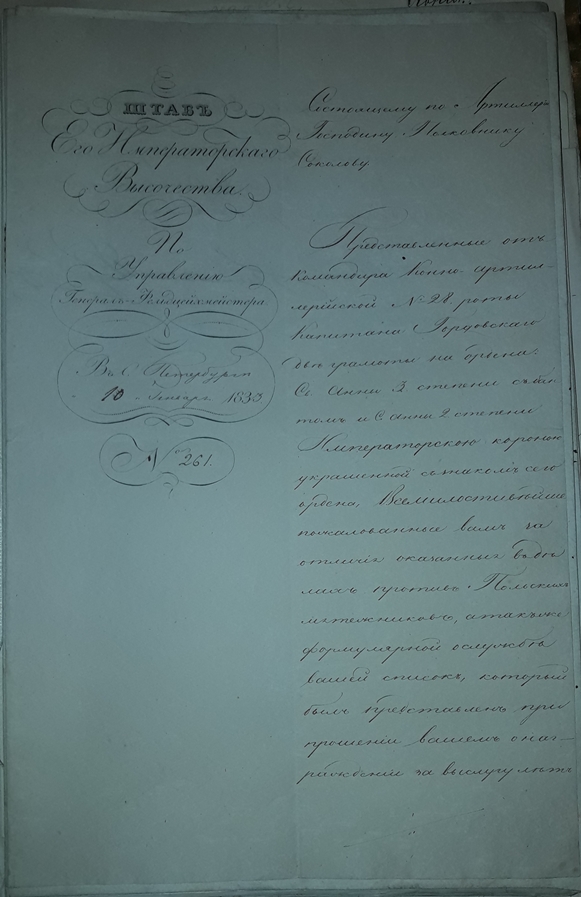 ШТАБЪ
Его Императорскаго
Высочества
По
Управленію
Генералъ-Фельдцейхмейстера
Въ С. Петербургѣ
10 Генваря 1833
№ 261.
Состоящему по Артиллеріи
Господину Полковнику
Соколову
Представленные отъ
Командира Конно-артил-
лерійской № 28 роты
Капитана
двѣ грамоты на ордена:
Св. Анны 3 степени съ бан-
томъ и С. Анны 2 степени
Императорскою короною
украшенной сзнакомъ сего
ордена, Всемилостивѣйше
пожалованные вамъ за
отличіе оказанныя въ дѣ-
лахъ противъ Польскихъ
мятежниковъ, а также
формулярной ослужбѣ
вашей списокъ, который
былъ представленъ при
прошеніи вашемъ онаг-
ражденіи за выслугу лѣтъ